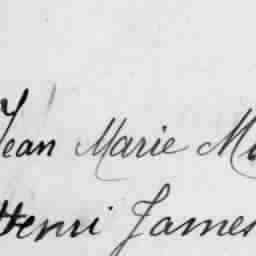 Jean Marie
Henri James